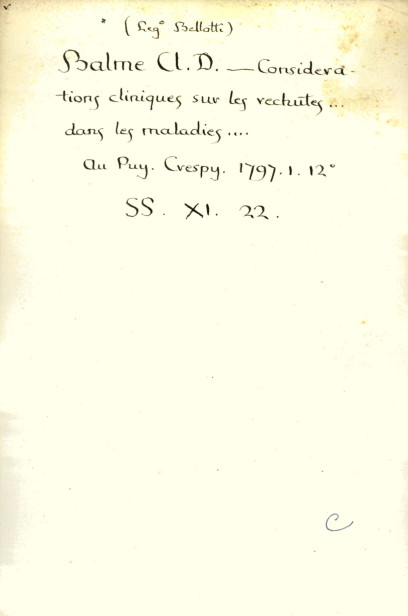 * (Leg° Bellotti)
Balme Cl. D. — Considera-
tions cliniques sur les rechutes...
dans les maladies....
Au Puy. Crespy. 1797. 1. 12°
SS. XI. 22.
C